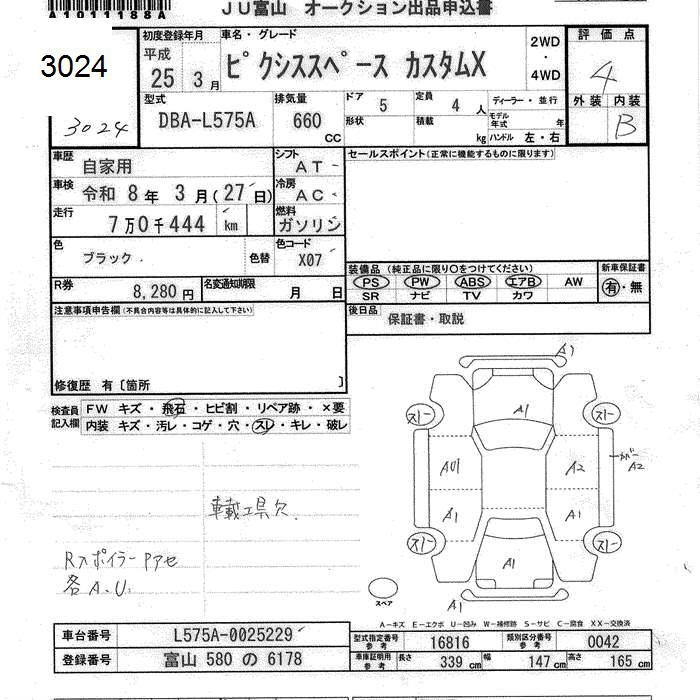 A1011188A
JU富山 オークション出品申込書
3024
3024
初度登録年月
平成
25 3月
車名・グレード
ピクシススペース カスタムX
2WD
・
4WD
評価点
4
外装 内装
B
型式
DBA-L575A
排気量
660
CC
ドア 5
形状
定員 4 人
積載 kg
ディーラー・並行
モデル年式 年
ハンドル 左・右
車歴
自家用
車検
令和 8年 3月(27日)
走行
7万0千444 km
シフト
AT
冷房
AC
燃料
ガソリン
色
ブラック
色替
色コード
X07
R券
8,280円
名変通知期限 月 日
セールスポイント(正常に機能するものに限ります)
装備品 (純正品に限り○をつけてください)
PS PW ABS エアB AW
SR ナビ TV カワ
新車保証書
有・無
後日品
保証書・取説
注意事項申告欄(不具合内容等は具体的に記入して下さい)
修復歴 有〔箇所 〕
検査員記入欄
FW キズ・飛石・ヒビ割・リペア跡・×要
内装 キズ・汚レ・コゲ・穴・スレ・キレ・破レ
車載工具欠
RスポイラーPアセ
各A.U.
A1
A1
スチー
スチー
AU1
A2
A2
A1
A1
スチー
スチー
A1
A1
スペア
A−キズ E−エクボ U−凹み W−補修跡 S−サビ C−腐食 XX−交換済
車台番号
L575A-0025229
登録番号
富山 580 の 6178
型式指定番号参考
16816
類別区分番号参考
0042
車庫証明用参考
長さ 339cm
幅 147cm
高さ 165cm